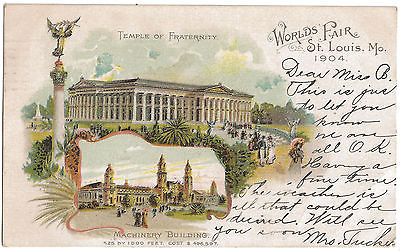 TEMPLE OF FRATERNITY
WORLD'S FAIR
St. Louis, Mo.
1904.
Dear Miss B.
This is just
to let you
know
we are
all O.K.
Having a
fine time.
The weather is
all that could be
desired. Will see
you soon
Mrs. Tucker
MACHINERY BUILDING.
525 BY 1000 FEET. COST $ 496,597.